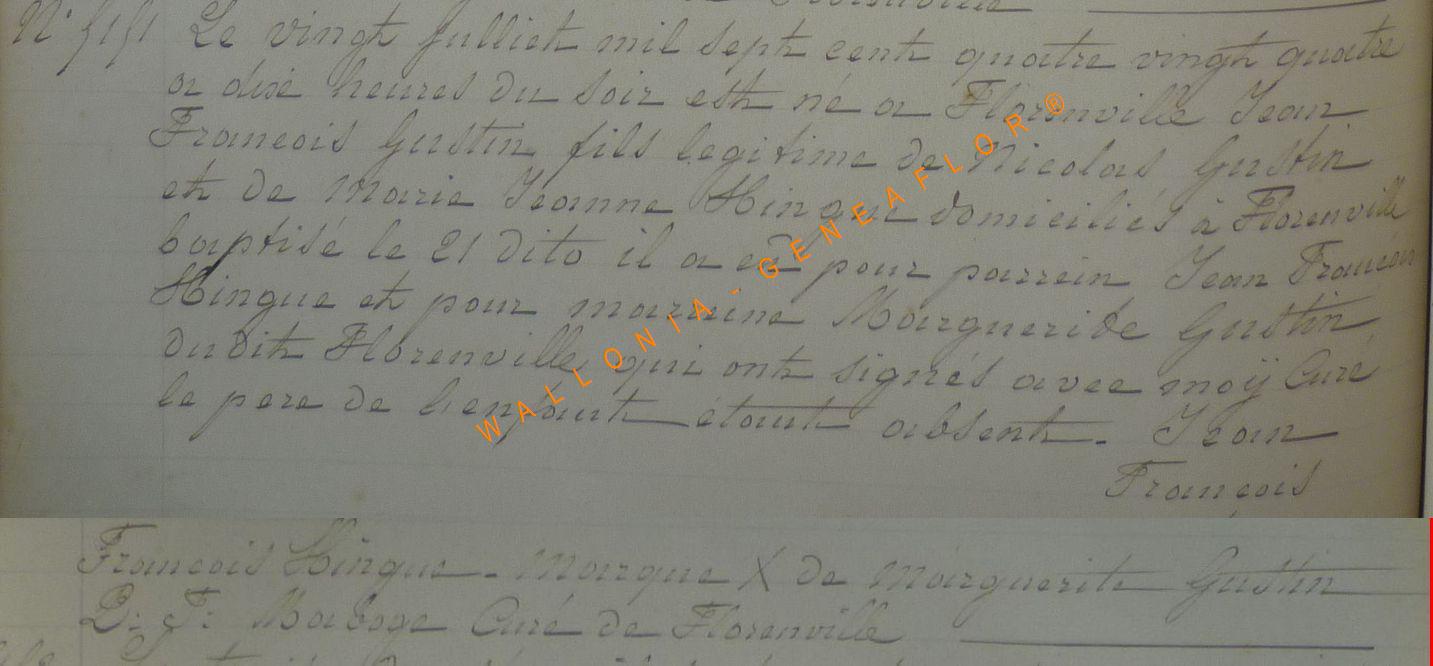 Florenville
N° 515 Le vingt Julliet mil sept cent quatre vingt quatre
a dix heures du soir est né a Florenville Jean
Francois Gustin fils legitime de Nicolas Gustin
et de Marie Jeanne Hingue domiciliés à Florenville
baptisé le 21 dito il a eu pour parrein Jean Francois
Hingue et pour marraine Marguerite Gustin
dudit Florenville qui ont signés avec moÿ Curé
le pere de l'enfant étant absent. Jean
François
WALLONIA - GENEAFLOR ®
Francois Hingue - Marque X de Marguerite Gustin
D: F: Maboge Curé de Florenville